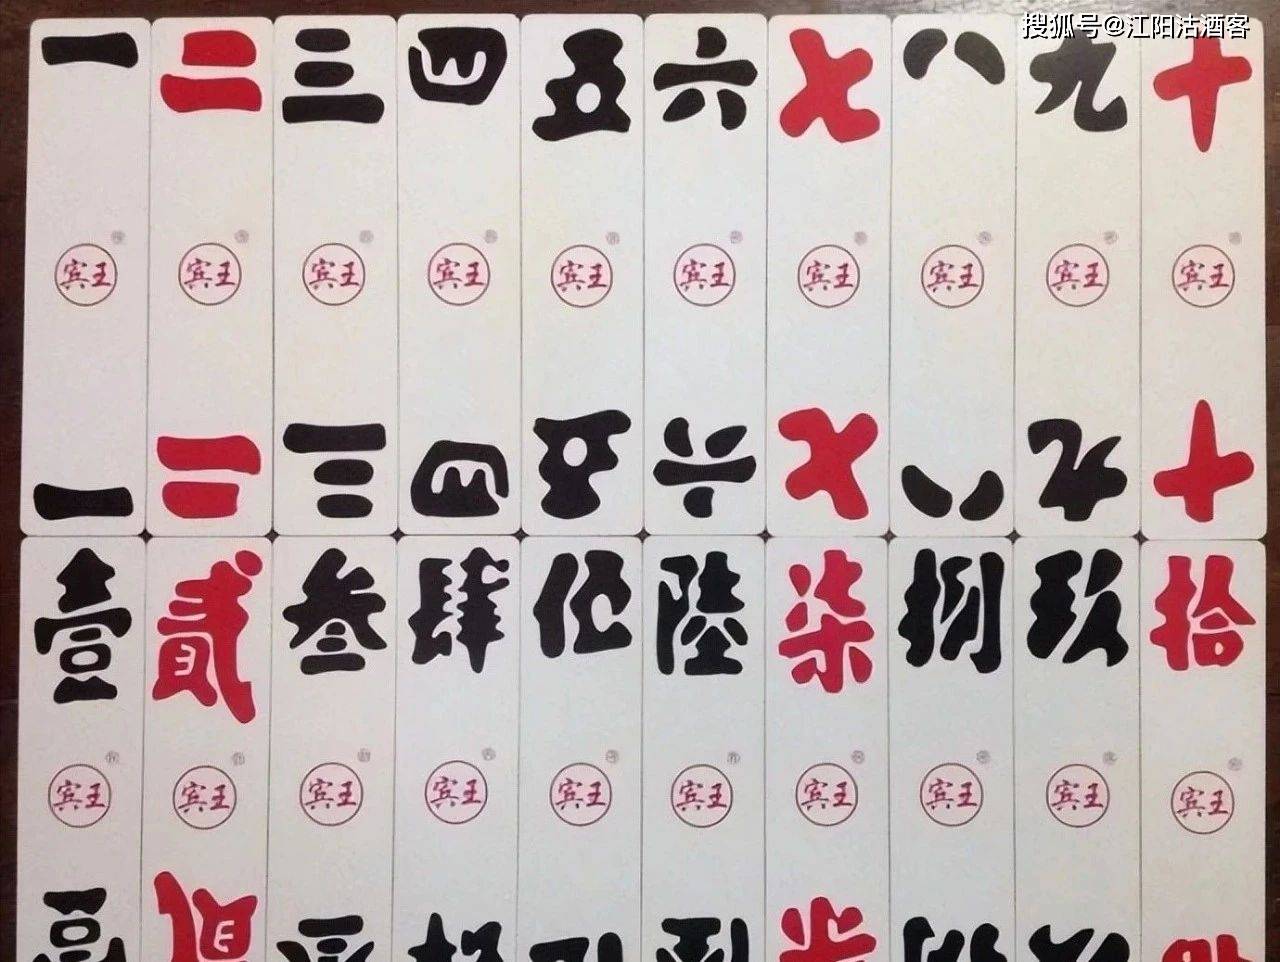 搜狐号@江阳沽酒客
一 二 三 四 五 六 七 八 九 十
宾王 宾王 宾王 宾王 宾王 宾王 宾王 宾王 宾王 宾王
一 二 三 四 五 六 七 八 九 十
壹 贰 叁 肆 伍 陆 柒 捌 玖 拾
宾王 宾王 宾王 宾王 宾王 宾王 宾王 宾王 宾王 宾王
壹 贰 叁 肆 伍 陆 柒 捌 玖 拾